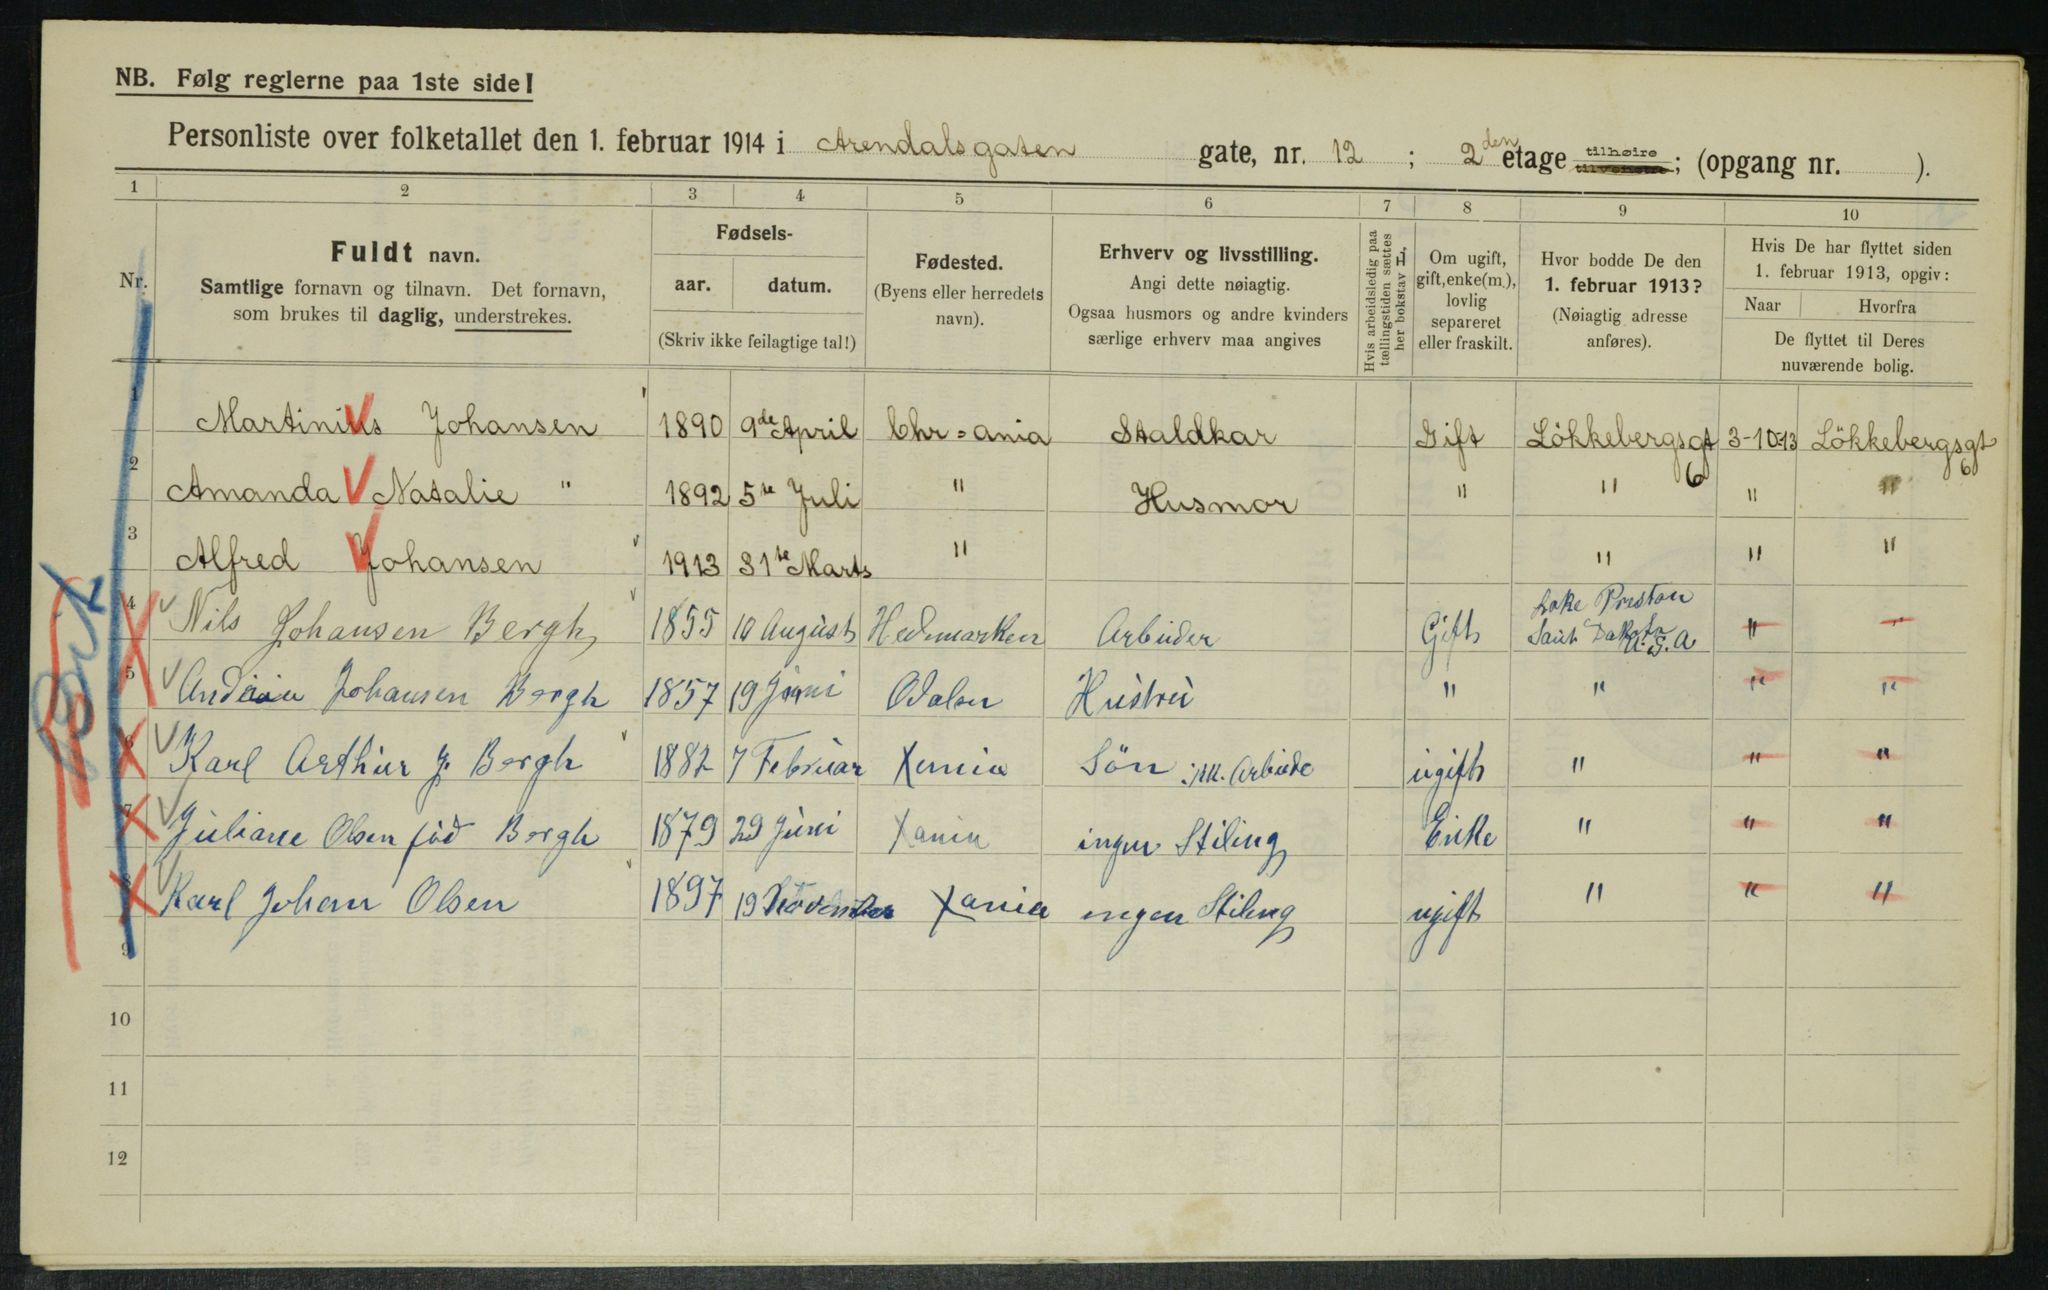 NB. Følg reglerne paa 1ste side!
Personliste over folketallet den 1. februar 1914 i Arendalsgaten gate, nr. 12 ; 2den etage tilhøire tilvenstre; (opgang nr. ).
1 2 3 4 5 6 7 8 9 10
Nr.
Fuldt navn.
Samtlige fornavn og tilnavn. Det fornavn,
som brukes til daglig, understrekes.
Fødsels-
aar. datum.
(Skriv ikke feilagtige tal!)
Fødested.
(Byens eller herredets
navn).
Erhverv og livsstilling.
Angi dette nøiagtig.
Ogsaa husmors og andre kvinders
særlige erhverv maa angives
Hvis arbeidsledig paa
tællingstiden sættes
her bokstav L.
Om ugift,
gift, enke(m.),
lovlig
separeret
eller fraskilt.
Hvor bodde De den
1. februar 1913?
(Nøiagtig adresse
anføres).
Hvis De har flyttet siden
1. februar 1913, opgiv:
Naar Hvorfra
De flyttet til Deres
nuværende bolig.
1 Martinius Johansen 1890 9de April Chr=ania Staldkar Gift Lökkebergsgt 6 3-10-13 Lökkebergsgt 6
2 Amanda Natalie " 1892 5te Juli " Husmor " " " "
3 Alfred Johansen 1913 31te Marts " " " "
4 Nils Johansen Bergh 1855 10 August Hedemarken Arbeider Gift Lake Preston Saut Dakota U.S.A " "
5 Johansen Bergh 1857 19 Juni Odalen Hustru " " " "
6 Karl Arthur J. Bergh 1882 7 Februar Xania Sön Arbeide ugift " " "
7 Juliane Olsen föd Bergh 1879 29 Juni Xania ingen Stiling Enke " " "
8 Karl Johan Olsen 1897 19 November Xania ingen Stiling ugift " " "
9
10
11
12